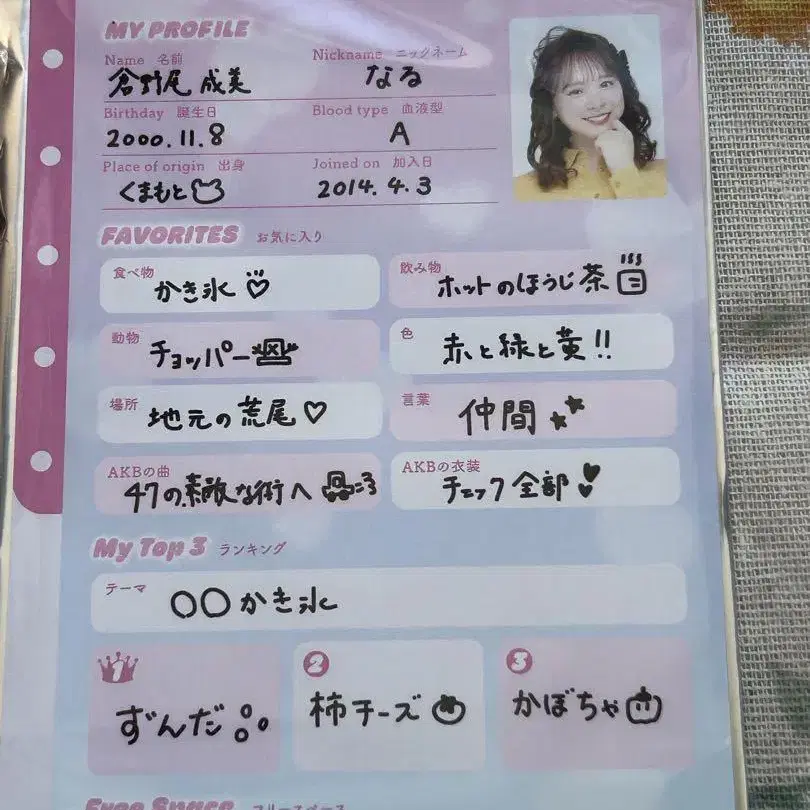 MY PROFILE
Name 名前
倉野尾 成美
Nickname ニックネーム
なる
Birthday 誕生日
2000.11.8
Blood type 血液型
A
Place of origin 出身
くまもと
Joined on 加入日
2014.4.3
FAVORITES お気に入り
食べ物
かき氷
飲み物
ホットのほうじ茶
動物
チョッパー
色
赤と緑と黄!!
場所
地元の荒尾♡
言葉
仲間
AKBの曲
47の素敵な街へ
AKBの衣装
チェック全部
My Top 3 ランキング
テーマ
〇〇かき氷
1
ずんだ
2
柿チーズ
3
かぼちゃ
Free Space フリースペース